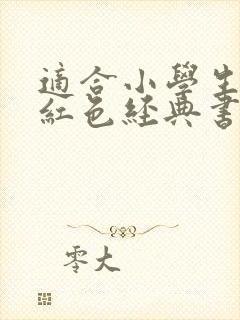 適合小學生
紅色経典書
零大